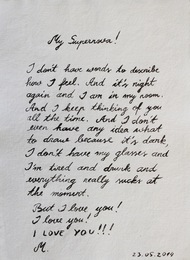 My Supernova!
I don't have words to describe
how I feel. And it's night
again and I am in my room.
And I keep thinking of you
all the time. And I don't
even have any idea what
to draw because it's dark,
I don't have my glasses and
I'm tired and drunk and
everything really sucks at
the moment.
But I love you!
I love you!
I LOVE YOU!!!
M.
23.05.2014